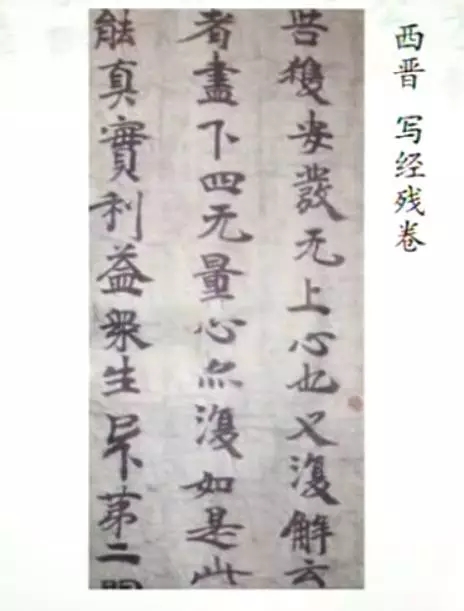 西晋 写经残卷
皆獲安發无上心也又復解云
者盡下四无量心亦復如是此
能真實利益眾生已下第二明